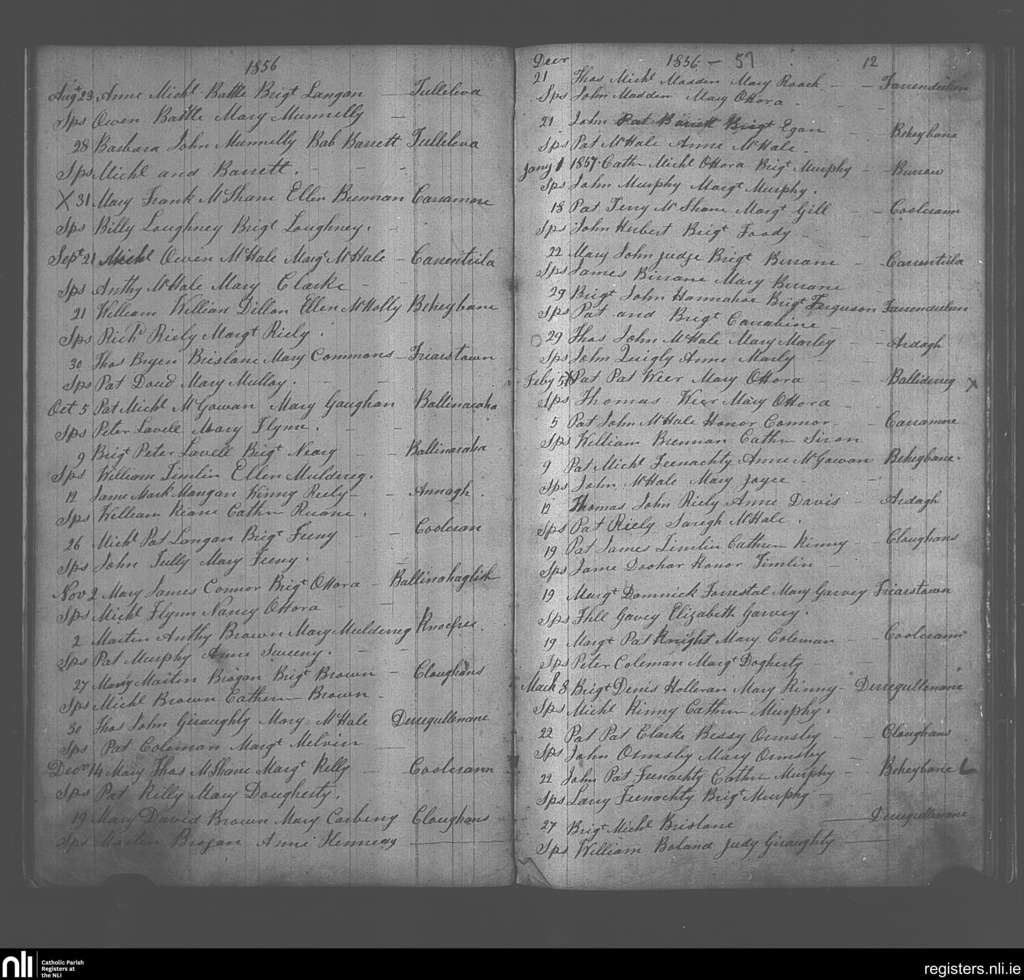 1856
Augt 23 Anne Michl Battle Brigt Langan — Tulleleva
Sps Owen Battle Mary Munnelly —
28 Barbara John Munnelly Bab Barrett Tulleleva
Sps Michl and Barrett.
X 31 Mary Frank McShane Ellen Brennan Carramore
Sps Billy Loughney Brigt Loughney.
Sept 21 Michl Owen McHale Margt McHale — Carrentrila
Sps Anthy McHale Mary Clarke —
21 William William Dillon Ellen McNolly Bekeybane
Sps Richd Riely Margt Riely.
30 Thos Bryen Brislane Mary Commons — Friarstown
Sps Pat Doud Mary Mulloy.
Oct 5 Pat Michl McGowan Mary Gaughan Ballinacoha
Sps Peter Lavell Mary Flynn.
9 Brigt Peter Lavell Brigt Neary — Ballinacoha
Sps William Timlin Ellen Muldereg.
12 Jame Mark Mangan Winny Riely — Annagh.
Sps William Keane Cathn Ruane.
26 Michl Pat Langan Brigt Feeny Coolcran
Sps John Tully Mary Feeny.
Nov 2 Mary James Connor Brigt OHora — Ballinahaglish
Sps Michl Flynn Nancy OHora
2 Martin Anthy Brown Mary Muldereg Knocfree.
Sps Pat Murphy Anne Sweeny.
27 Mary Martin Brogan Brigt Brown — Cloughans
Sps Michl Brown Cathrn Brown.
30 Thos John Giraughty Mary McHale Deregullenane
Sps Pat Coleman Margt Melvin
Decr 14 Mary Thos McShane Margt Kelly — Coolcrann
Sps Pat Killy Mary Dougherty.
19 Mary David Brown Mary Corbeng Cloughans
Sps Martin Brogan Anne Flennery
Decr 1856 — 57 12
21 Thos Michl Madden Mary Roach — Farrendulin
Sps John Madden Mary OHora.
21 John Pat Barrett Brigt Egan — Bekeybane
Sps Pat McHale Anne McHale.
Jany 1 1857 Cathn Michl OHora Brigt Murphy — Burraw
Sps John Murphy Margt Murphy.
18 Pat Terry McShane Margt Gill — Coolcrann
Sps John Hubert Brigt Foody.
22 Mary John Judge Brigt Birrane — Carrentrila
Sps James Birrane Mary Birrane
29 Brigt John Hannahoe Brigt Ferguson Farrendulin
Sps Pat and Brigt Carrabine —
29 Thos John McHale Mary Marley — Ardagh
Sps John Quigly Anne Marly
Feby 5 X Pat Pat Weer Mary OHora — Ballidereg X
Sps Thomas Weer Mary OHora
5 Pat John McHale Honor Connor — Carramore
Sps William Brennan Cathn Siron
9 Pat Michl Feenachty Anne McGowan Bekeybane.
Sps John McHale Mary Joyce
12 Thomas John Riely Anne Davis — Ardagh
Sps Pat Riely Saragh McHale.
19 Pat James Timlin Cathrn Kinny — Cloughans
Sps Jame Honor Timlin
19 Margt Domnick Forrestal Mary Garvey Friarstown
Sps Phill Gavey Elizabeth Garvey.
19 Margt Pat Knight Mary Coleman — Coolcrann
Sps Peter Coleman Margt Dogherty
March 8 Brigt Denis Holleran Mary Kinny — Deregullenane
Sps Michl Kinny Cathrn Murphy.
22 Pat Pat Clarke Bessy Ormsby — Cloughans
Sps John Ormsby Mary Ormsby
22 John Pat Feenachty Cathrn Murphy — Bekeybane
Sps Lary Feenachty Brigt Murphy —
27 Brigt Michl Brislane — Deregullenane
Sps William Boland Judy Giraughty
nli Catholic Parish
Registers at
the NLI
registers.nli.ie